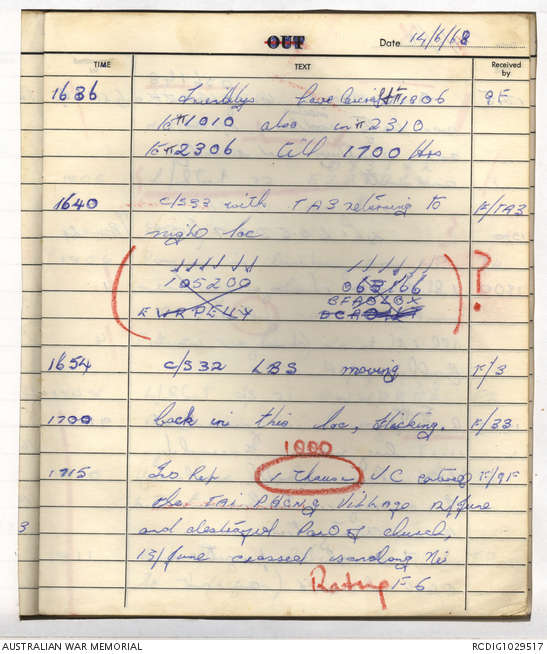 OUT Date 14/6/68
TIME TEXT Received by
1636 Friendlys have 1806 9F
1010 also in 2310
2306 till 1700 Hrs
1640 C/S33 with TA3 returning to F/TA3
night loc
105200 063166 ?
EVRPELLY BFAOLBX
1654 C/S32 LBS moving F/3
1700 back in this loc, F/33
1000
1715 Ins Rep 1 Thousand VC entered F/9F
Village 12/June
and destroyed Part of church,
13/June crossed
Rating F 6
3
AUSTRALIAN WAR MEMORIAL RCDIG1029517